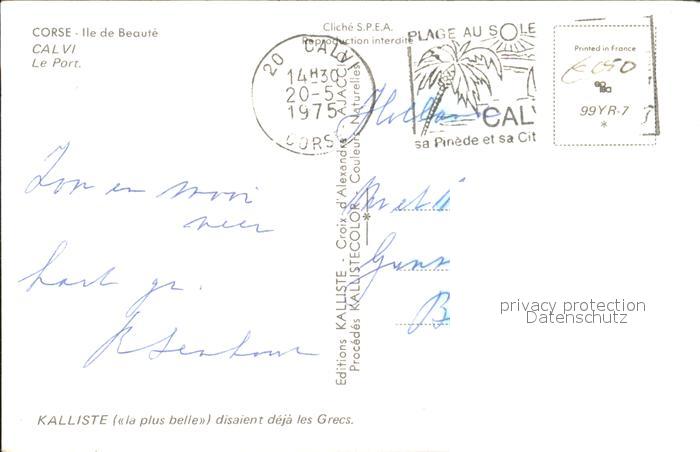 CORSE - Ile de Beauté
CALVI
Le Port.
Cliché S.P.E.A.
Reproduction interdite
20 CALVI
14H30
20-5
1975
CORSE
PLAGE AU SOLE
CALV
sa Pinède et sa Cit
Printed in France
99YR-7
*
Holland
Zon en mooi
weer
hart gr.
Editions KALLISTE - Croix d'Alexandre - AJACCIO
Procédés KALLISTECOLOR * Couleurs Naturelles
B
privacy protection
Datenschutz
KALLISTE («la plus belle») disaient déjà les Grecs.